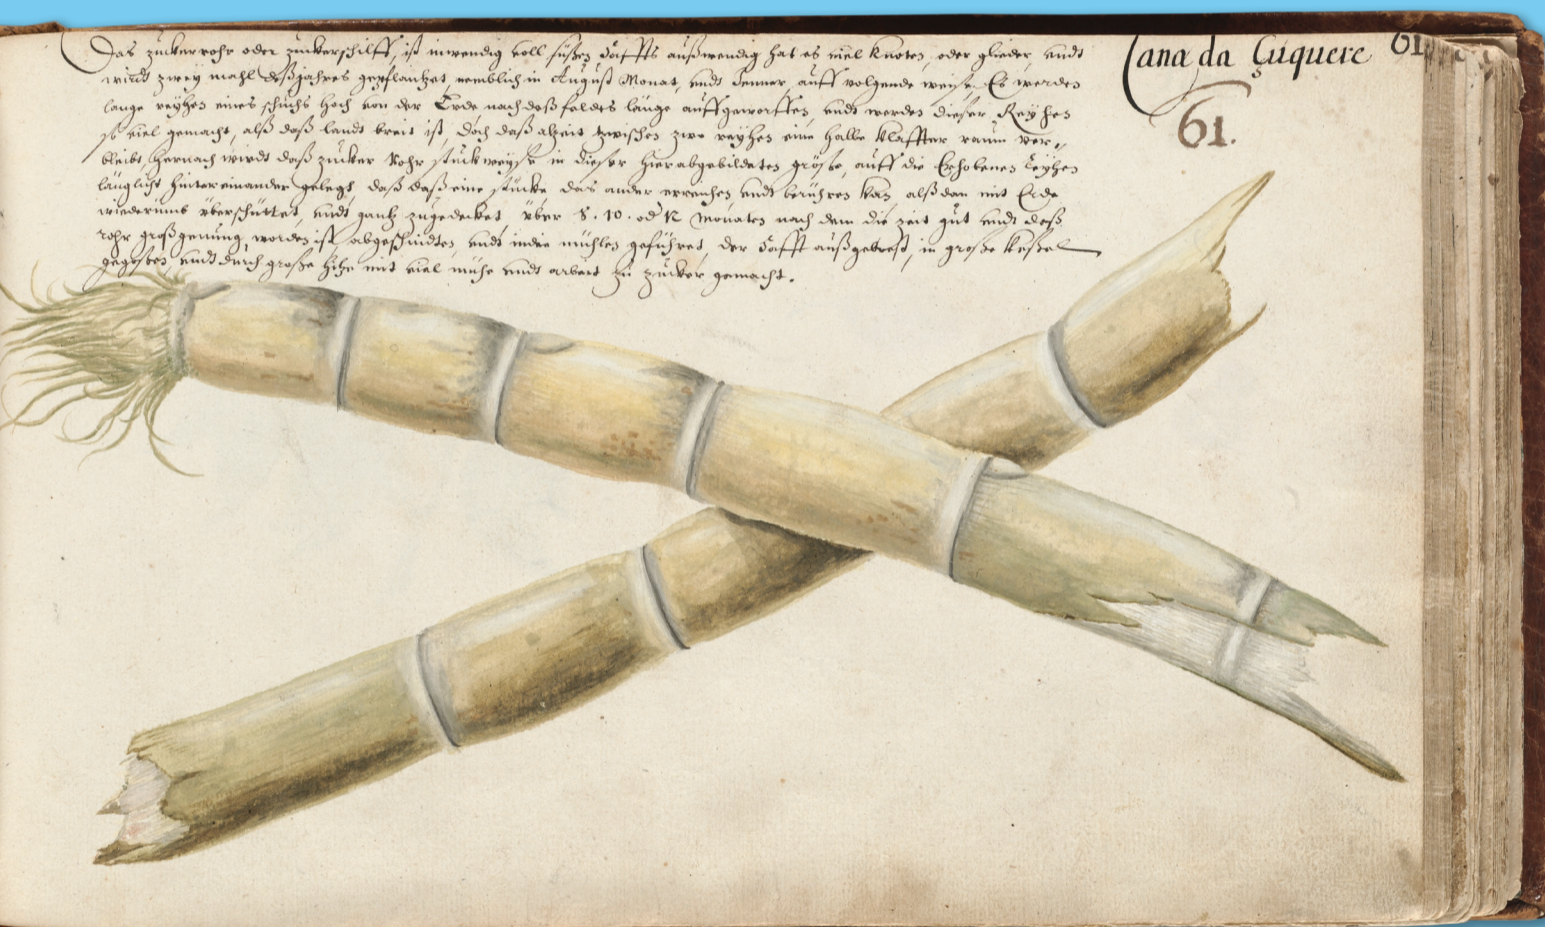 Cana da Çúquere
61
61.
Das zuckerrohr oder zuckerschilff, ist inwendig voll süßen Saffts außwendig hat es viel knoten, oder glieder, undt
wirdt zwey mahl deß jahres gepflantzet, nemblich in August Monat, undt Jenner, auff volgende weise, Es werden
lange reyhen eines schuchs hoch von der Erde nach deß feldes länge auffgeworffen, undt werden dieser Reyhen
so viel gemacht, alß daß landt breit ist, doch daß alzeit zwischen zwo reyhen eine halbe Klaffter raum ver,,
bleibt, hernach wirdt daß zucker Rohr stückweyse in dieser hierabgebildeten größe, auff die Erhobenen reyhen
länglicht hintereinander gelegt, daß daß eine stücke das ander erreichen undt berühren kan, alß dan mit Erde
wiederumb überschüttet, undt gantz zugedecket, über 8. 10. od 12 Monaten nach dem die zeit gut undt deß
rohr groß genung worden ist, abgeschnidten, undt in die mühlen geführet, der Safft außgepreßt, in große keßel
gegoßen, undt durch große hitze mit viel mühe undt arbeit zu zucker gemacht.